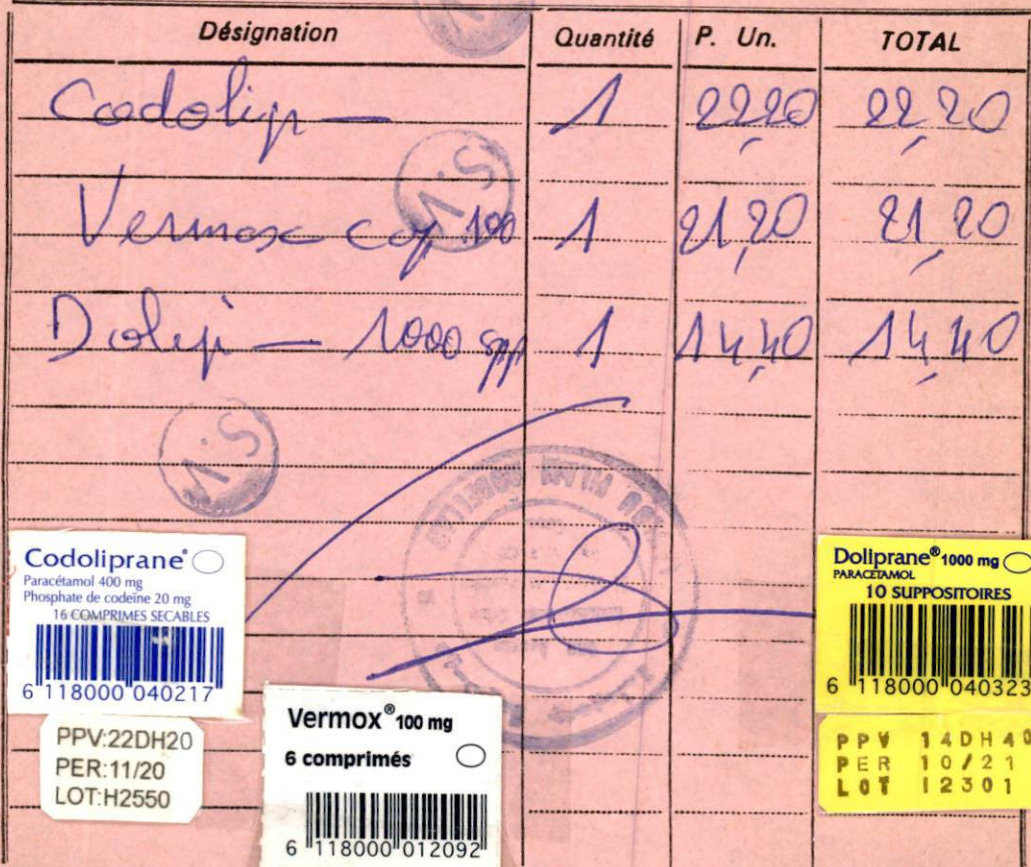 Désignation Quantité P. Un. TOTAL
Codolip — 1 22,20 22,20
Vermox cop 100 1 21,20 21,20
Dolip — 1000 spp 1 14,40 14,40
V.S
V.S
Codoliprane®
Paracétamol 400 mg
Phosphate de codeïne 20 mg
16 COMPRIMES SECABLES
6 118000 040217
PPV:22DH20
PER:11/20
LOT:H2550
Vermox® 100 mg
6 comprimés
6 118000 012092
Doliprane® 1000 mg
PARACETAMOL
10 SUPPOSITOIRES
6 118000 040323
PPV 14DH40
PER 10/21
LOT I2301